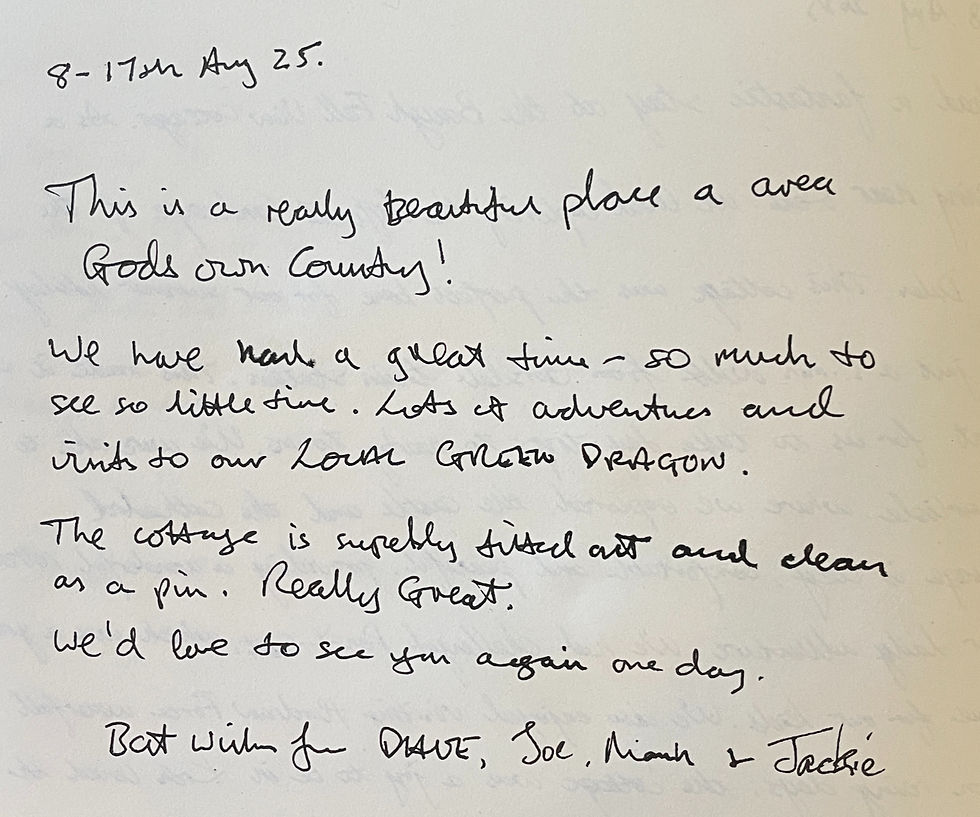 8-17th Aug 25.
This is a really beautiful place a area
Gods own Country!
We have had a great time - so much to
see so little time. Lots of adventures and
visits to our LOCAL GREEN DRAGON.
The cottage is superbly fitted out and clean
as a pin. Really Great.
We'd love to see you again one day.
Best wishes from DAVE, Joe, Niamh & Jackie